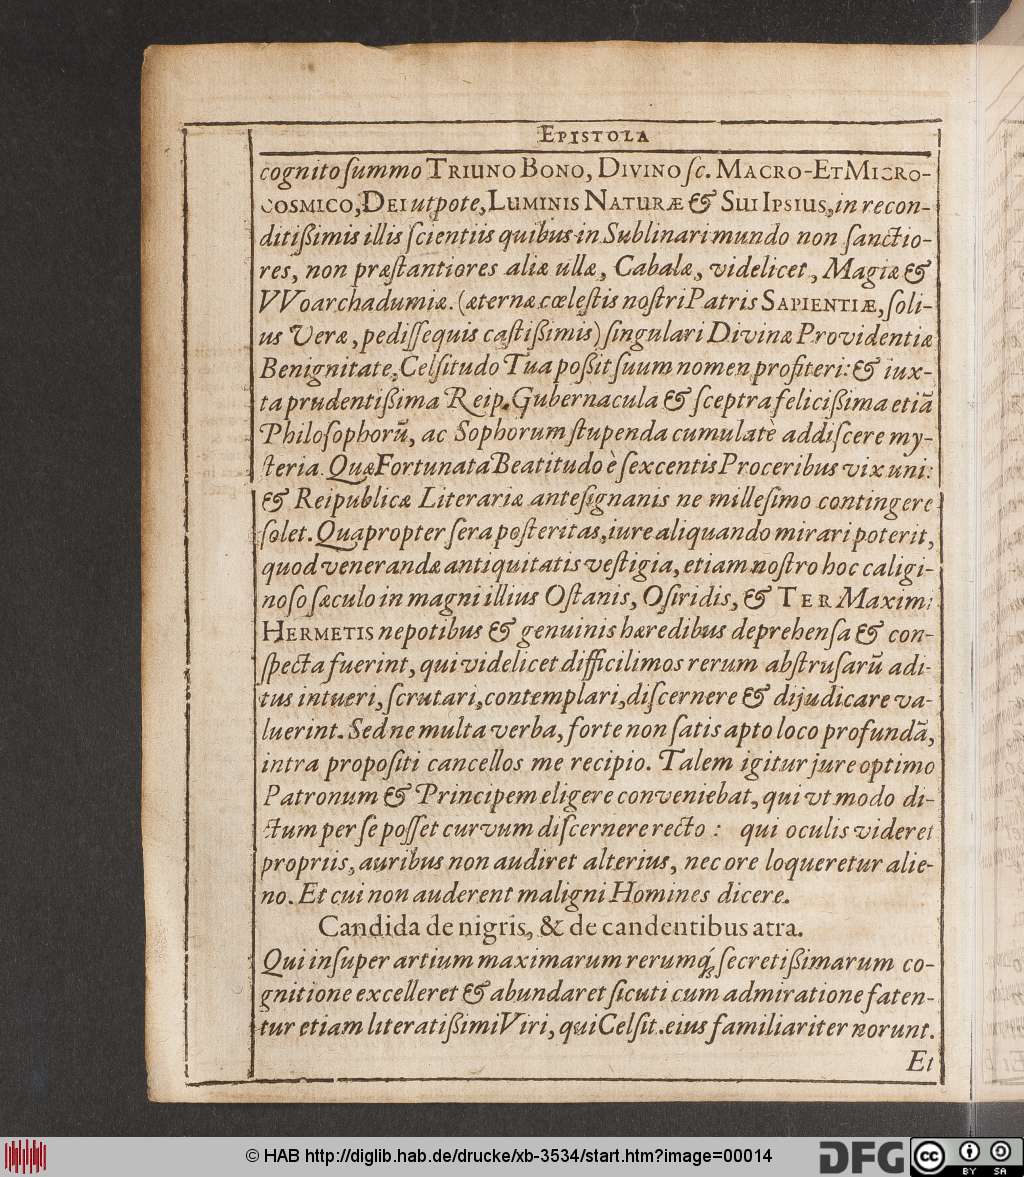 EPISTOLA
cognito ſummo TRIUNO BONO, DIVINO ſc. MACRO-ET MICRO-
COSMICO, DEI utpote, LUMINIS NATURÆ & SUI IPSIUS, in recon-
ditißimis illis ſcientiis quibus in Sublinari mundo non ſanctio-
res, non præſtantiores aliæ ullæ, Cabalæ, videlicet, Magiæ &
VVoarchadumiæ. (æternæ cœleſtis noſtri Patris SAPIENTIÆ, ſoli-
us Veræ, pediſſequis caſtißimis) ſingulari Divinæ Providentiæ
Benignitate, Celſitudo Tua poßit ſuum nomen profiteri: & iux-
ta prudentißima Reip. Gubernacula & ſceptra feliciſſima etiã
Philoſophorũ, ac Sophorum ſtupenda cumulatè addiſcere my-
ſteria. Quæ Fortunata Beatitudo è ſexcentis Proceribus vix uni:
& Reipublicæ Literariæ anteſignanis ne milleſimo contingere
ſolet. Quapropter ſera poſteritas, iure aliquando mirari poterit,
quod venerandæ antiquitatis veſtigia, etiam noſtro hoc caligi-
noſo ſæculo in magni illius Oſtanis, Oſiridis, & TER Maximi
HERMETIS nepotibus & genuinis hæredibus deprehenſa & con-
ſpecta fuerint, qui videlicet difficilimos rerum abſtruſarũ adi-
tus intueri, ſcrutari, contemplari, diſcernere & dijudicare va-
luerint. Sed ne multa verba, forte non ſatis apto loco profundã,
intra propoſiti cancellos me recipio. Talem igitur jure optimo
Patronum & Principem eligere conveniebat, qui vt modo di-
ctum per ſe poſſet curvum diſcernere recto: qui oculis videret
propriis, auribus non audiret alterius, nec ore loqueretur alie-
no. Et cui non auderent maligni Homines dicere.
Candida de nigris, & de candentibus atra.
Qui inſuper artium maximarum rerumq́; ſecretißimarum co-
gnitione excelleret & abundaret ſicuti cum admiratione faten-
tur etiam literatißimi Viri, qui Celſit. eius familiariter norunt.
Et
© HAB http://diglib.hab.de/drucke/xb-3534/start.htm?image=00014
DFG
cc BY SA